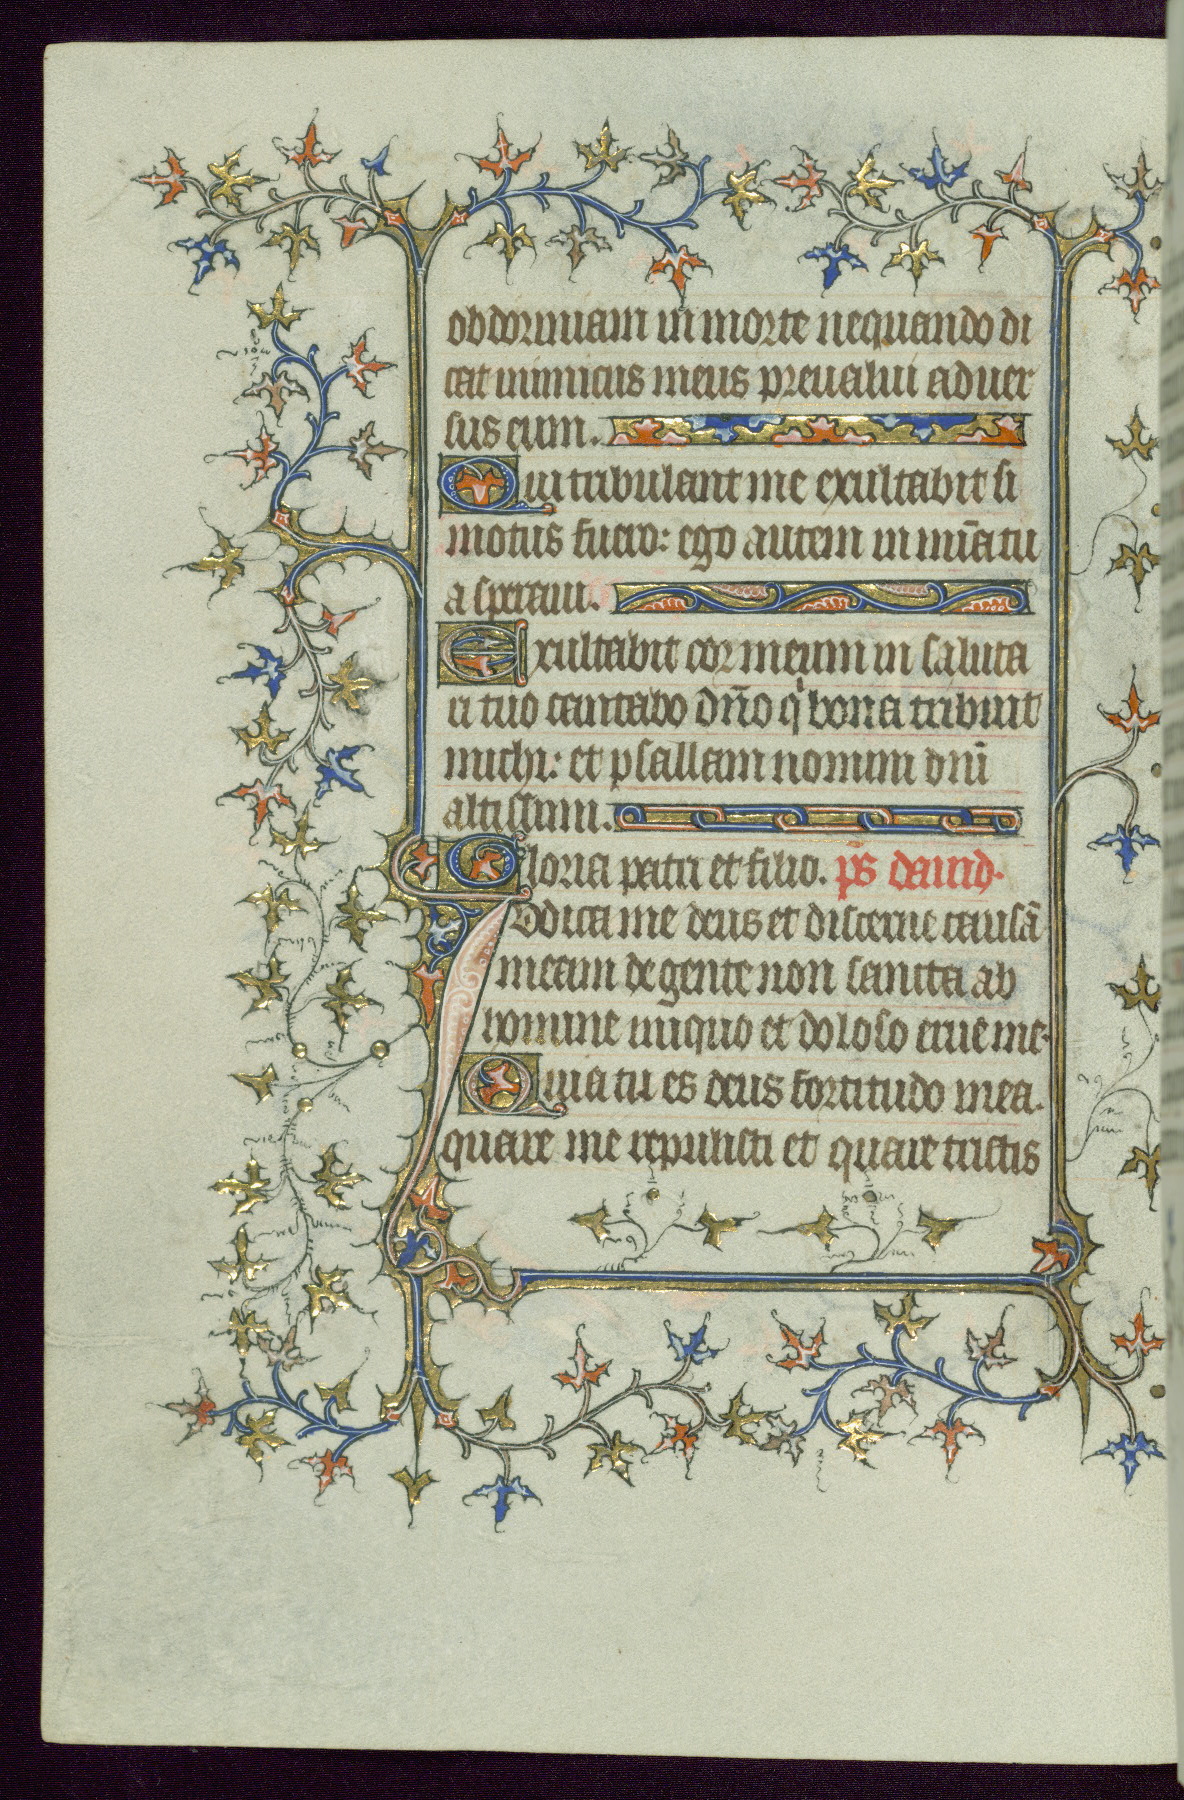 obdormiam in morte nequando di
cat inimicus meus preualui aduer
sus eum.
Qui tribulant me exultabūt si
motus fuero: ego autem in mīa tu
a speraui.
Exultabit cor meum in saluta
ri tuo cantabo dño q' bona tribuit
michi: et psallam nomini dnī
altissimi.
Gloria patri et filio. ps dauid.
Iudica me deus et discerne causā
meam de gente non sancta ab
homine iniquo et doloso erue me.
Quia tu es deus fortitudo mea.
quare me repulisti et quare tristis